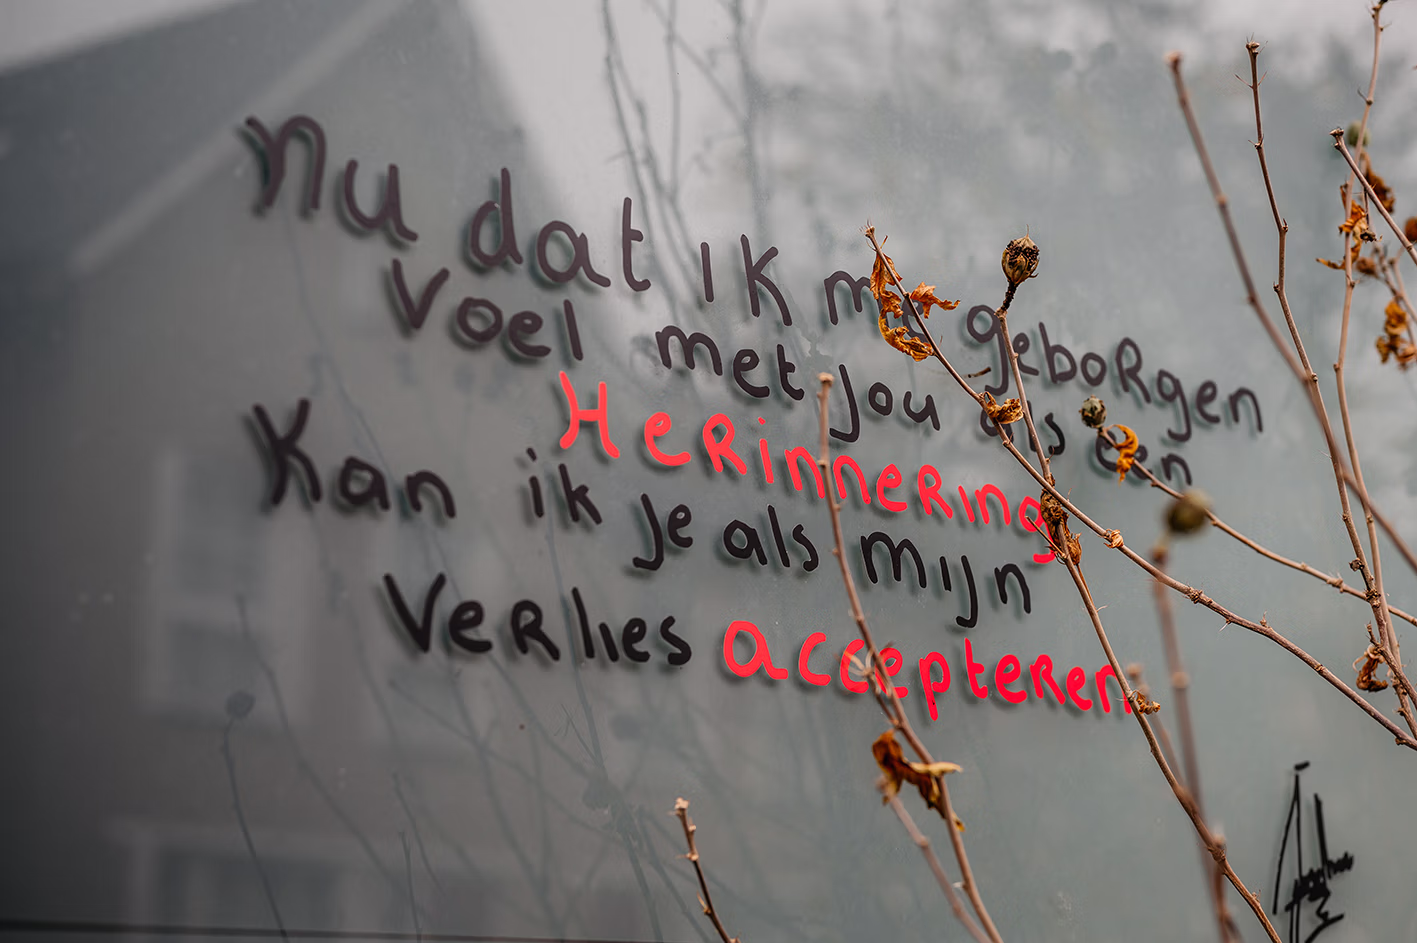 Nu dat ik me geborgen
voel met jou als een
Herinnering
Kan ik je als mijn
Verlies accepteren